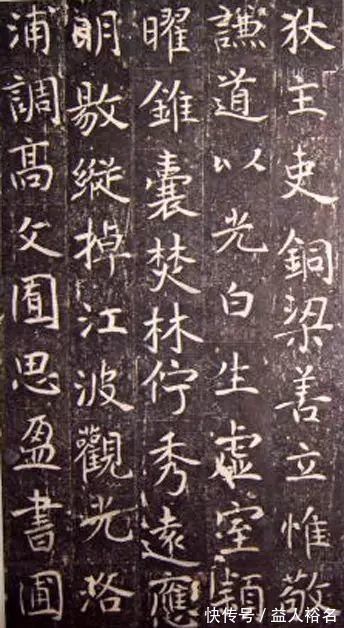 狄王吏銅梁善立惟敬
謙道以光白生虛室穎
曜錐囊焚林佇秀遠應
明敭縱棹江波觀光洛
浦調高文囿思盈書圃
快传号／益人裕名